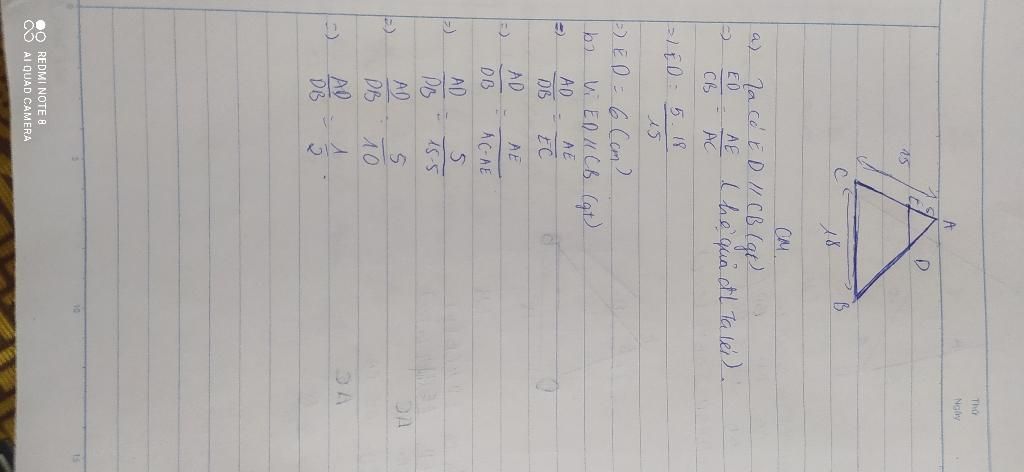 Thứ
Ngày
A
5
E
D
15
C
B
18
CM.
a) Ta có ED // CB (gt)
=) ED/CB = AE/AC (hệ quả đl Ta lét).
=) ED = 5.18/15
=) ED = 6 (cm)
b) Vì ED // CB (gt)
=) AD/DB = AE/EC
=) AD/DB = AE/AC-AE
=) AD/DB = 5/15-5
=) AD/DB = 5/10
=) AD/DB = 1/2.
0
5
10
15
REDMI NOTE 8
AI QUAD CAMERA